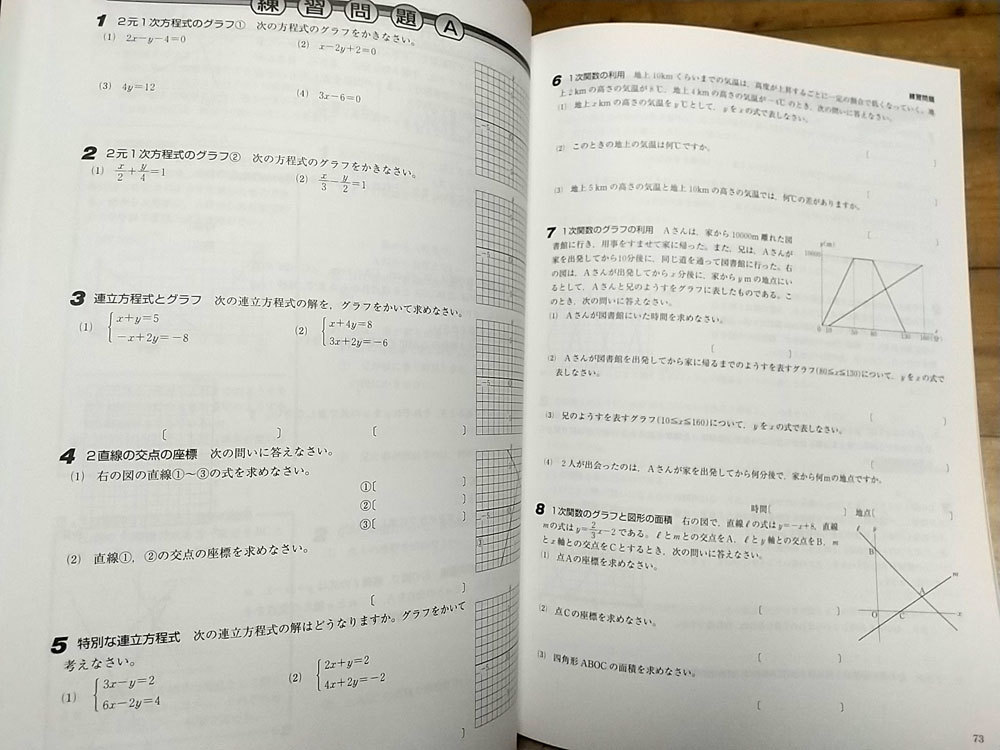 練習問題A
1 2元1次方程式のグラフ① 次の方程式のグラフをかきなさい。
(1) 2x-y-4=0
(2) x-2y+2=0
(3) 4y=12
(4) 3x-6=0
2 2元1次方程式のグラフ② 次の方程式のグラフをかきなさい。
(1) x/2+y/4=1
(2) x/3-y/2=1
3 連立方程式とグラフ 次の連立方程式の解を，グラフをかいて求めなさい。
(1) { x+y=5
-x+2y=-8
(2) { x+4y=8
3x+2y=-6
〔 〕
〔 〕
4 2直線の交点の座標 次の問いに答えなさい。
(1) 右の図の直線①〜③の式を求めなさい。
①〔 〕
②〔 〕
③〔 〕
(2) 直線①，②の交点の座標を求めなさい。
〔 〕
5 特別な連立方程式 次の連立方程式の解はどうなりますか。グラフをかいて
考えなさい。
(1) { 3x-y=2
6x-2y=4
(2) { 2x+y=2
4x+2y=-2
練習問題
6 1次関数の利用 地上10kmくらいまでの気温は，高度が上昇するごとに一定の割合で低くなっていく。地
上2kmの高さの気温が8℃，地上4kmの高さの気温が-4℃のとき，次の問いに答えなさい。
(1) 地上xkmの高さの気温をy℃として，yをxの式で表しなさい。
〔 〕
(2) このときの地上の気温は何℃ですか。
〔 〕
(3) 地上5kmの高さの気温と地上10kmの高さの気温では，何℃の差がありますか。
〔 〕
7 1次関数のグラフの利用 Aさんは，家から10000m離れた図
書館に行き，用事をすませて家に帰った。また，兄は，Aさんが
家を出発してから10分後に，同じ道を通って図書館に行った。右
の図は，Aさんが出発してからx分後に，家からymの地点にい
るとして，Aさんと兄のようすをグラフに表したものである。こ
のとき，次の問いに答えなさい。
y(m)
10000
0 10 50 80 130 160(分)
(1) Aさんが図書館にいた時間を求めなさい。
〔 〕
(2) Aさんが図書館を出発してから家に帰るまでのようすを表すグラフ(80≦x≦130)について，yをxの式で
表しなさい。
〔 〕
(3) 兄のようすを表すグラフ(10≦x≦160)について，yをxの式で表しなさい。
〔 〕
(4) 2人が出会ったのは，Aさんが家を出発してから何分後で，家から何mの地点ですか。
時間〔 〕 地点〔 〕
8 1次関数のグラフと図形の面積 右の図で，直線ℓの式はy=-x+8，直線
mの式はy=2/3x-2である。ℓとmとの交点をA，ℓとy軸との交点をB，m
とx軸との交点をCとするとき，次の問いに答えなさい。
ℓ y
B
m
A
O C x
(1) 点Aの座標を求めなさい。
〔 〕
(2) 点Cの座標を求めなさい。
〔 〕
(3) 四角形ABOCの面積を求めなさい。
〔 〕
73